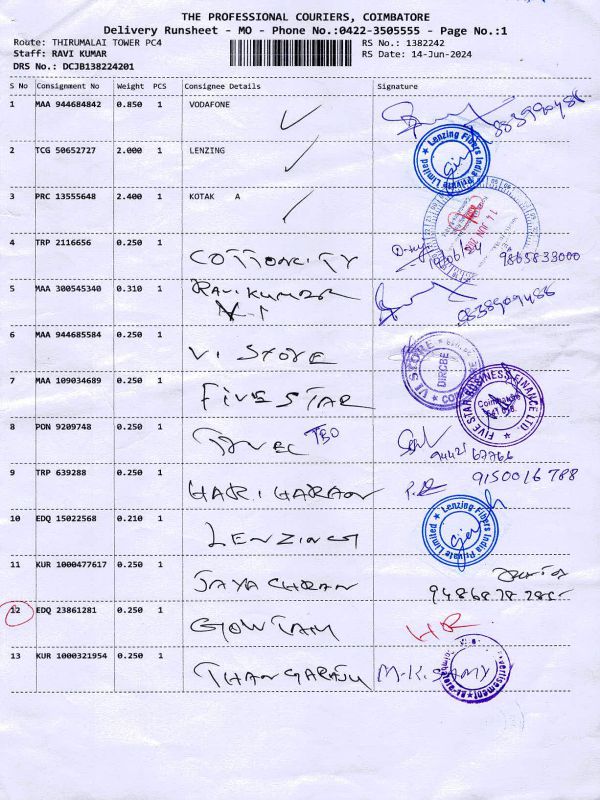 THE PROFESSIONAL COURIERS, COIMBATORE
Delivery Runsheet - MO - Phone No.:0422-3505555 - Page No.:1
Route: THIRUMALAI TOWER PC4 RS No.: 1382242
Staff: RAVI KUMAR RS Date: 14-Jun-2024
DRS No.: DCJB138224201
S No Consignment No Weight PCS Consignee Details Signature
1 MAA 944684842 0.850 1 VODAFONE
Lenzing Fibers India Private Limited
2 TCG 50652727 2.000 1 LENZING
3 PRC 13555648 2.400 1 KOTAK A
14 JUN
4 TRP 2116656 0.250 1 COTTONCITY 9865833000
5 MAA 300545340 0.310 1 RAVIKUMAR
6 MAA 944685584 0.250 1 VI STORE
VI STORE DIRCBE
7 MAA 109034689 0.250 1 FIVE STAR
FIVE STAR BUSINESS FINANCE LTD. Coimbatore
8 PON 9209748 0.250 1
9 TRP 639288 0.250 1 HARIHARAN 9150016788
10 EDQ 15022568 0.210 1 LENZING
Lenzing Fibers India Private Limited
11 KUR 1000477617 0.250 1 JAYACHRAN
12 EDQ 23861281 0.250 1 GOWTAM HR
13 KUR 1000321954 0.250 1 THANGARAJU M.K.SAMY